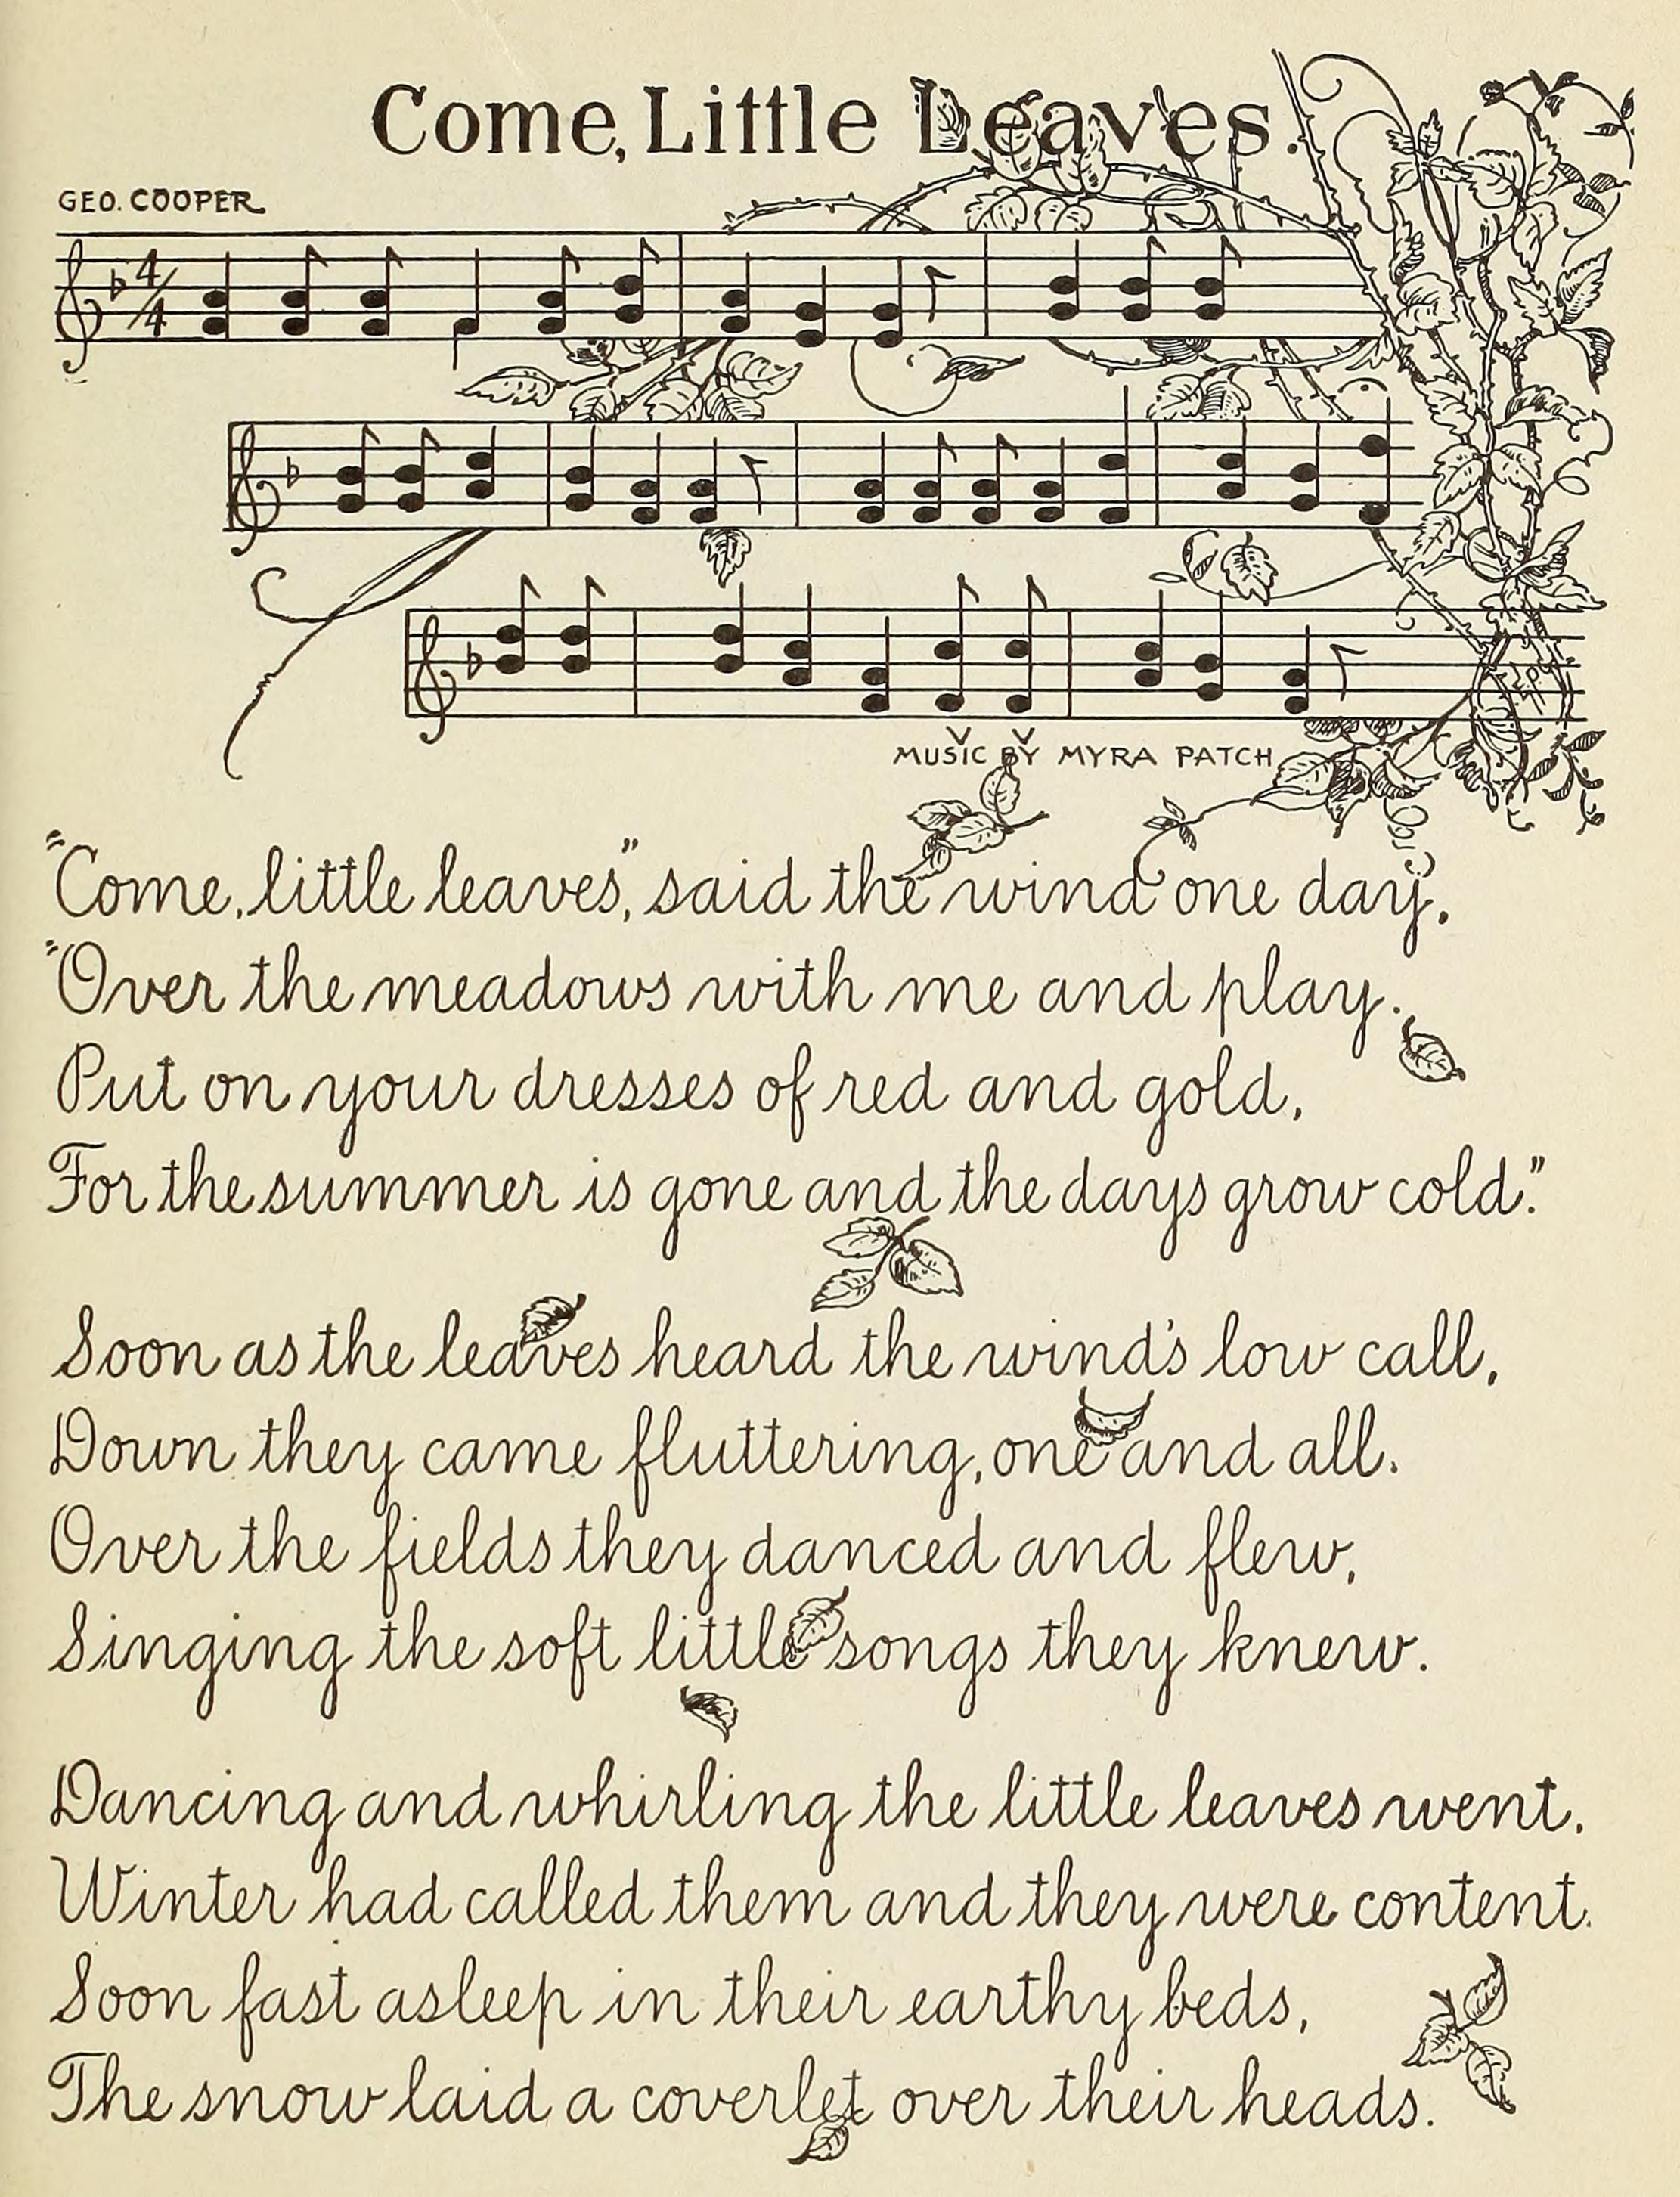 Come, Little Leaves.
GEO. COOPER
4/4
MUSIC BY MYRA PATCH
"Come, little leaves," said the wind one day.
"Over the meadows with me and play.
Put on your dresses of red and gold,
For the summer is gone and the days grow cold."
Soon as the leaves heard the wind's low call,
Down they came fluttering, one and all.
Over the fields they danced and flew,
Singing the soft little songs they knew.
Dancing and whirling the little leaves went.
Winter had called them and they were content.
Soon fast asleep in their earthy beds,
The snow laid a coverlet over their heads.